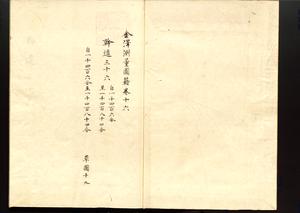 金澤測量圖籍卷十六
幹道三十六
自一千四百六合
至一千四百八十四合
自一千四百六合至一千四百八十四合
草圖十九